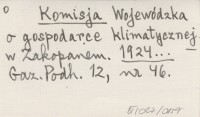 o Komisja Wojewódzka
o gospodarce klimatycznej
w Zakopanem. 1924...
Gaz. Podh. 12, nr 46.